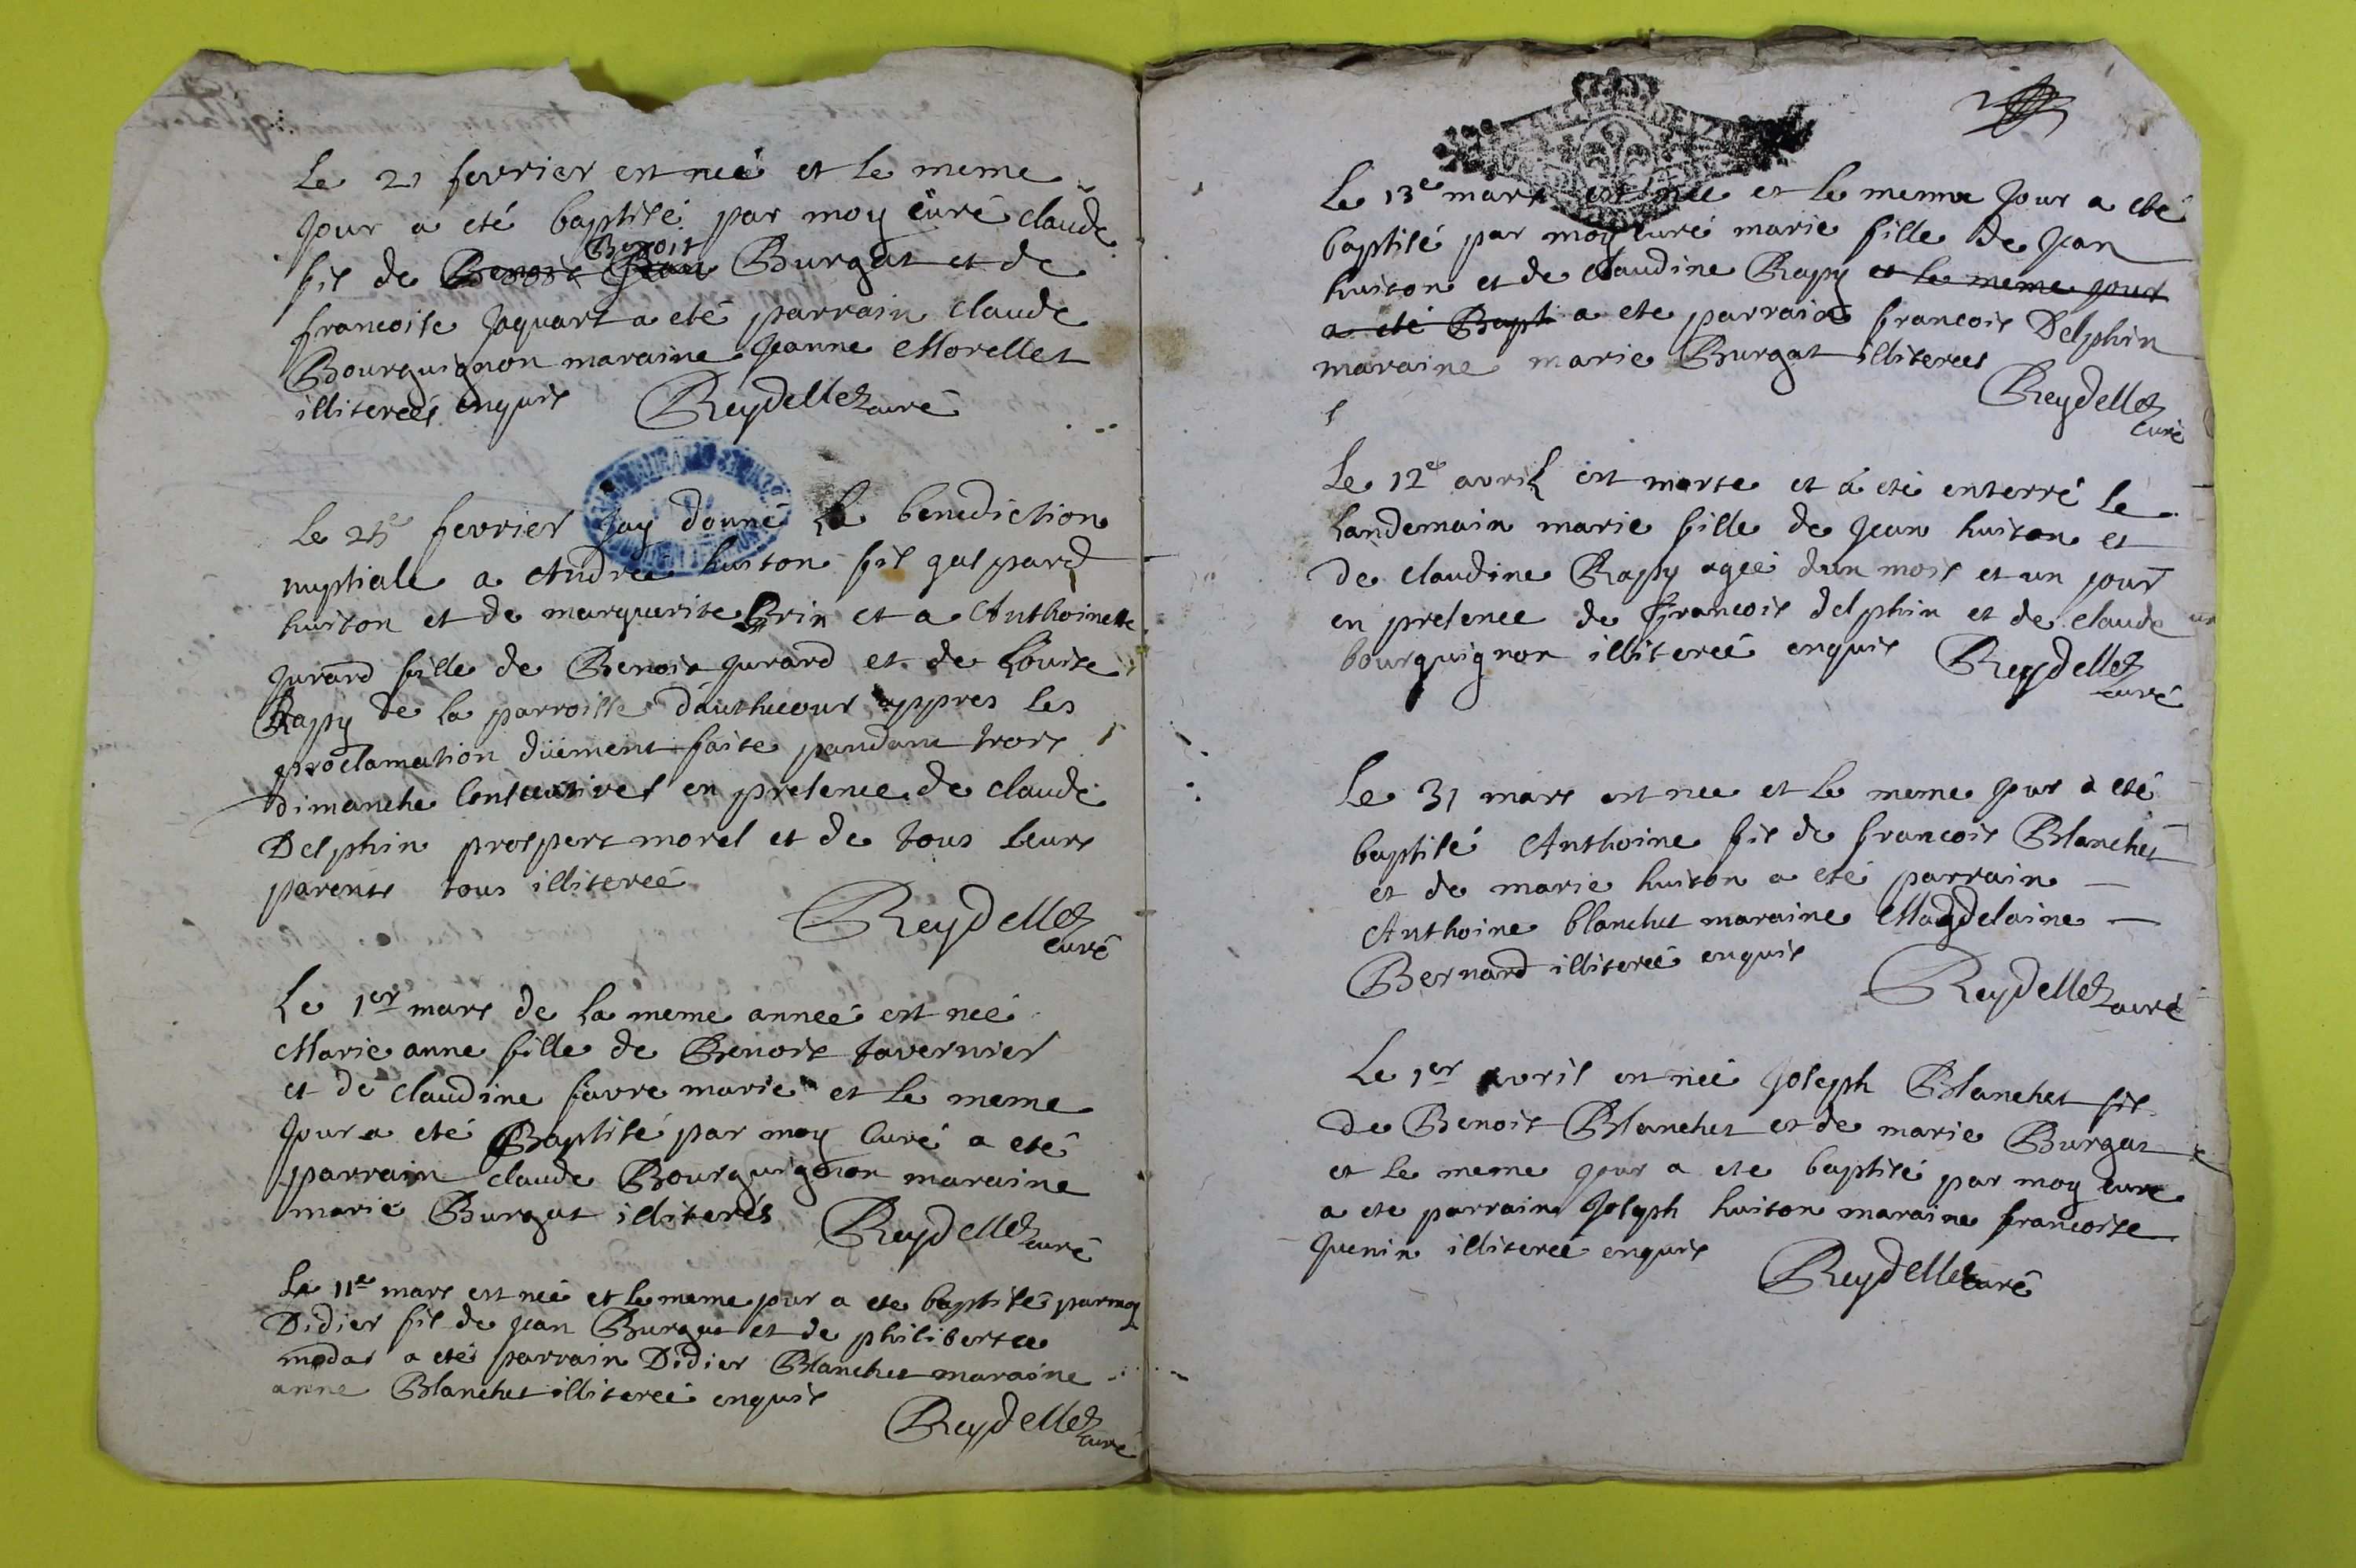 Le 21 fevrier est neé et le meme
jour a eté baptisé par moy curé claude
fis de Benoist Jean Benoist Burgat et de
francoise Jaquart a eté parrain claude
Bourguignon maraine Jeanne Morellet
illitereés enquis Reydellet curé
Le 25e fevrier jay donné la benediction
nuptiale a Andreé huiton fis gaspard
huiton et de marguerite Brin et a Anthoinette
Jurard fille de Benoit Jurard et de Louise
Rapy de la parroisse d'authecour appres les
proclamation düement faite pandant trois
dimanche Consecutives en presence de claude
Delphin prospert morel et de tous leurs
parents tous illitereé
Reydellet
curé
Le 1er mars de la meme anneé est neé
Marie anne fille de Benoit tavernier
et de claudine favre marié et le meme
jour a eté Baptisé par moy Curé a eté
parrain claude Bourguignon maraine
marie Burgat illiterés Reydellet curé
Le 11e mars est neé et le meme jour a ete baptisé par moy
Didier fis de jean Burgat et de philiberte
modas a eté parrain Didier Blanchet maraine
anne Blanchet illitereé enquis
Reydellet
curé
Le 13e mars est neé et le meme jour a eté
baptisé par moy curé marie fille de jean
huiton et de claudine Rapy et le meme jour
a eté Bapt a ete parrain francois Delphin
maraine marie Burgat illiterees
Reydellet
curé
Le 12e avril est morte et a eté enterré le
landemain marie fille de jean huiton et
de claudine Rapy ageé dun mois et un jour
en presence de francois delphin et de claude
bourguignon illitereé enquis Reydellet
curé
Le 31 mars est nee et le meme jour a eté
baptisé Anthoine fis de francois Blanchet
et de marie huiton a eté parrain
Anthoine blanchet maraine Magdelaine
Bernard illitereé enquis
Reydellet curé
Le 1er avril est neé Joseph Blanchet fis
de Benoit Blanchet et de marie Burgat
et le meme jour a ete baptisé par moy curé
a ete parrain Joseph huiton maraine francoise
Juenin illitereé enquis Reydellet curé